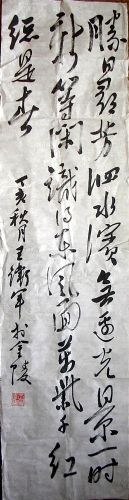 勝日尋芳泗水濱無邊光景一時
新等閑識得東風面萬紫千紅
總是春
丁亥秋月王衛軍於金陵